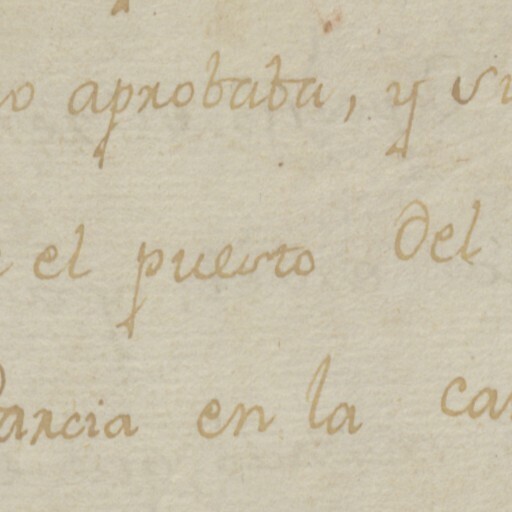 o aprobaba, y su
el puesto del
Garcia en la ca